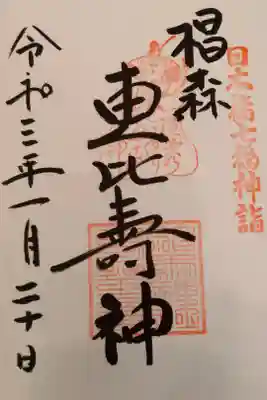 日本橋七福神詣
椙森
恵比壽神
令和三年一月二十日